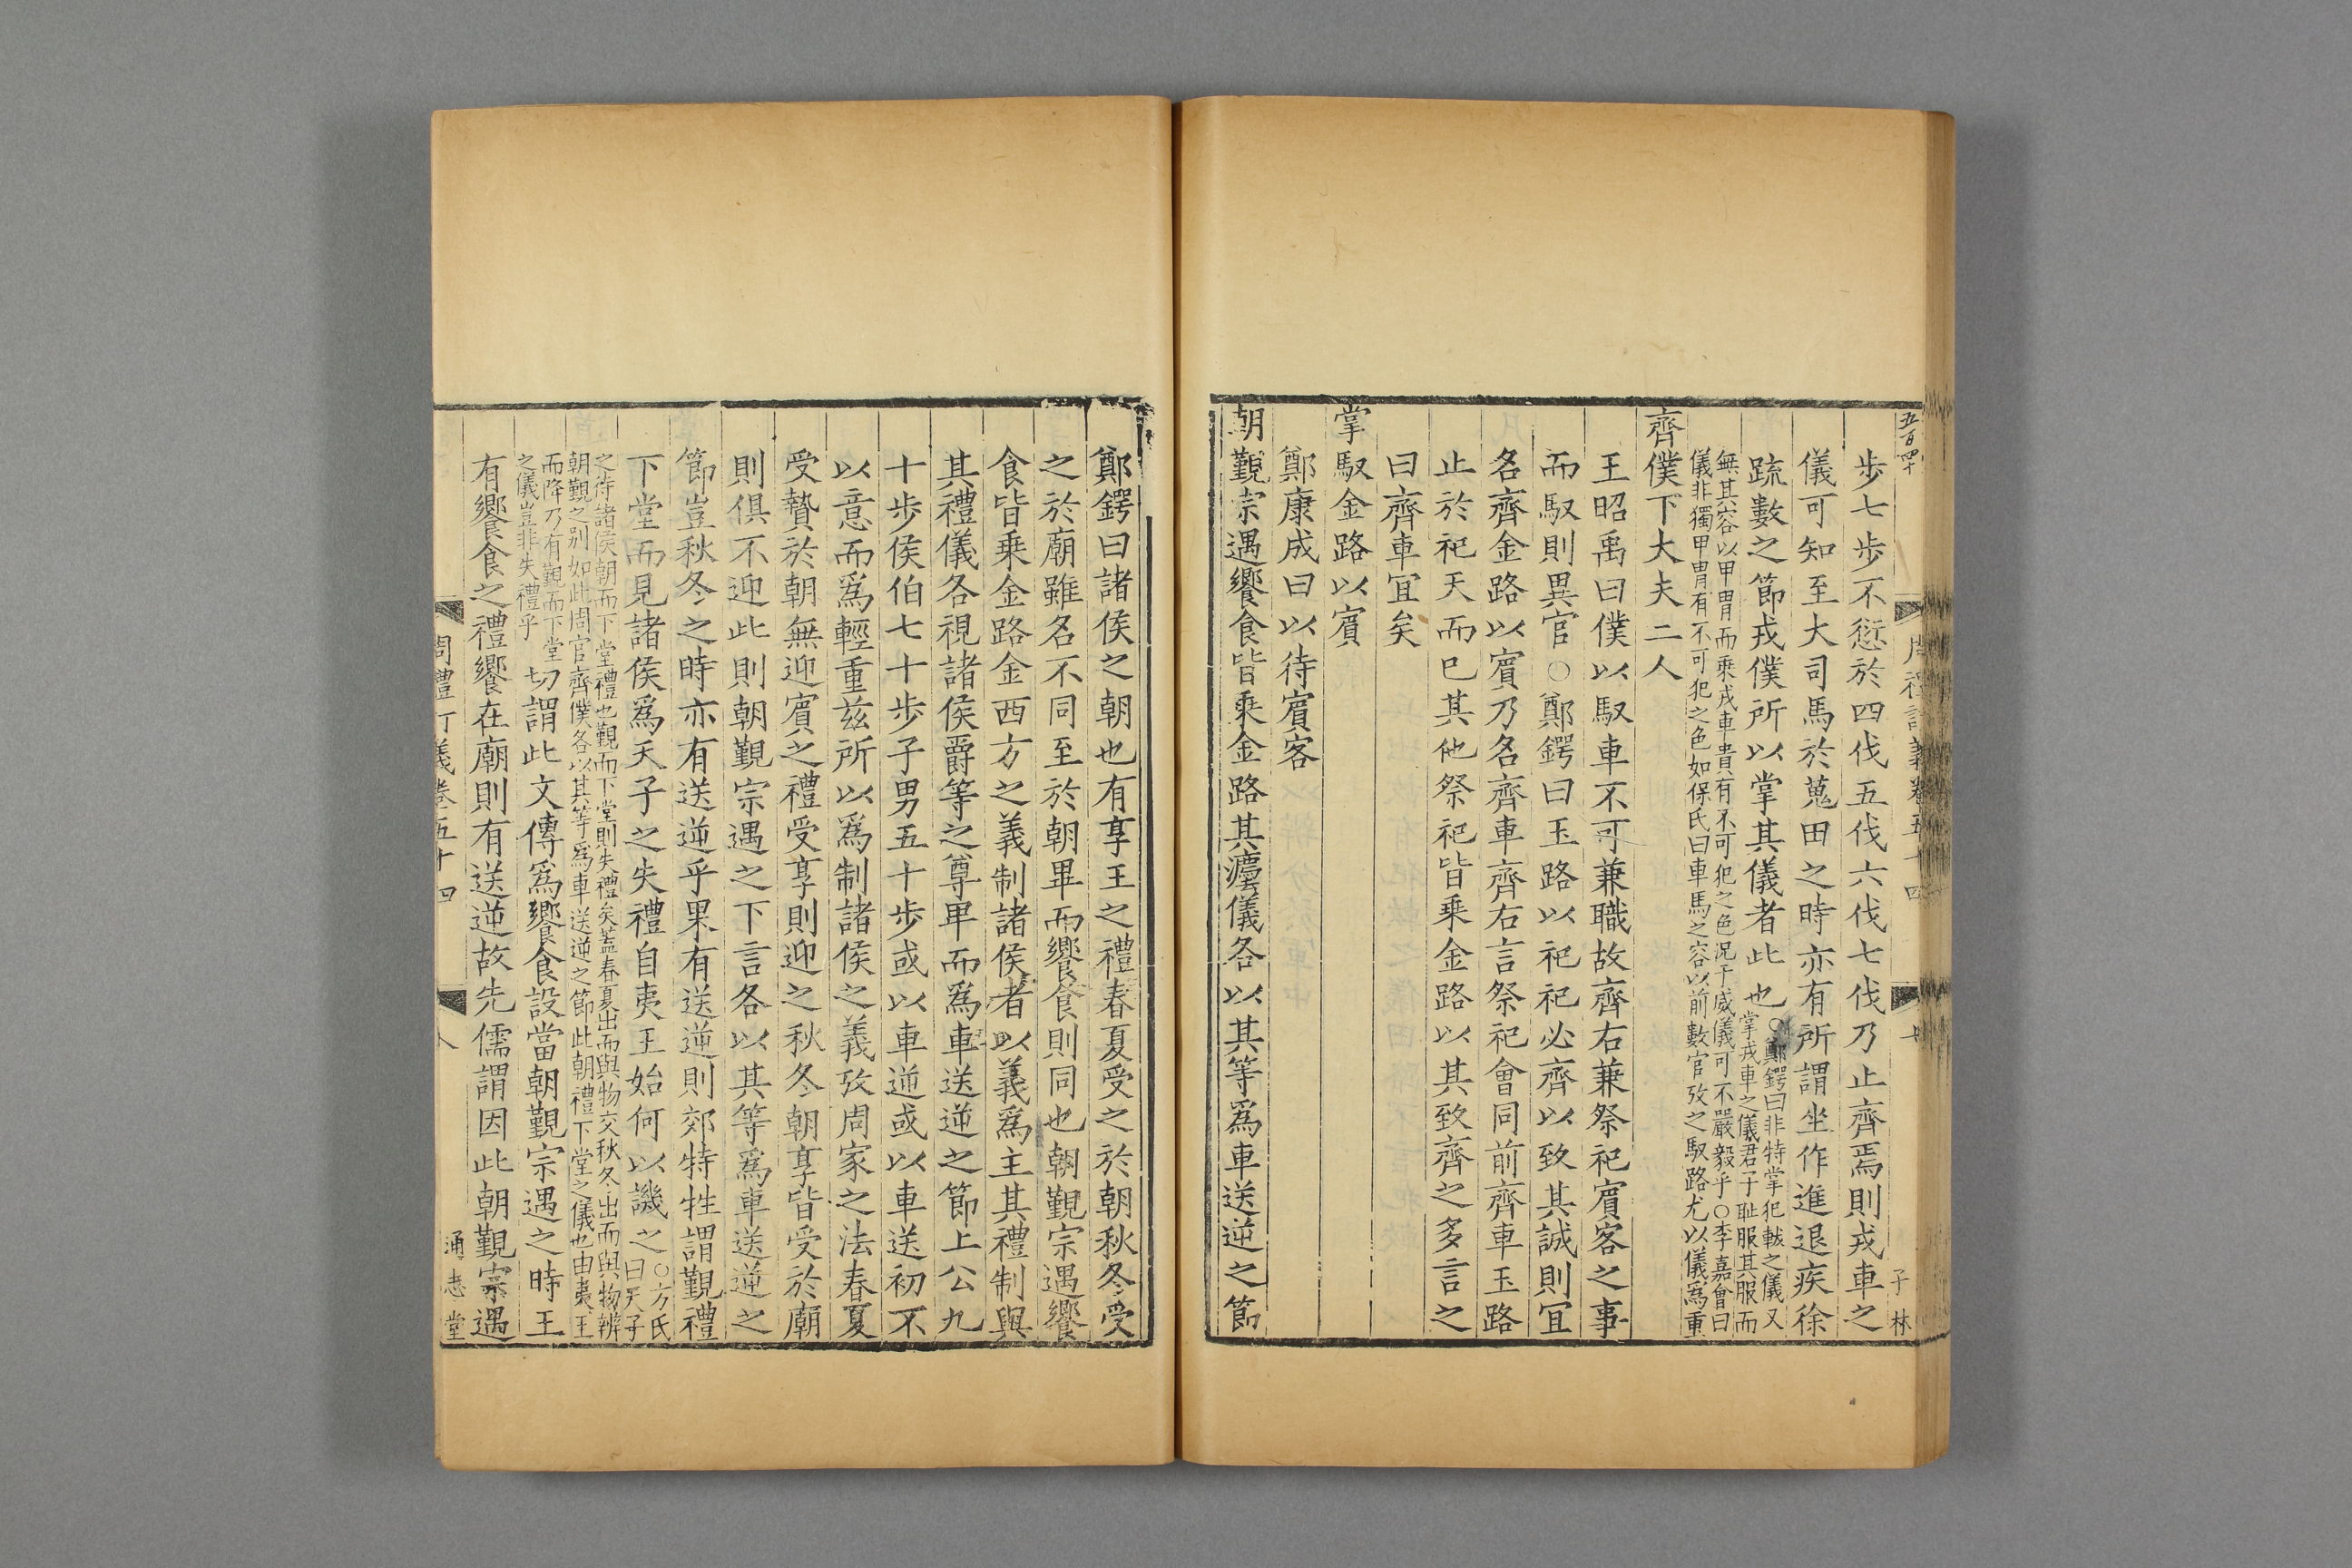 五百四十
周禮訂義卷五十四
七
子林
步七步不愆於四伐五伐六伐七伐乃止齊焉則戎車之
儀可知至大司馬於蒐田之時亦有所謂坐作進退疾徐
疏數之節戎僕所以掌其儀者此也○鄭鍔曰非特掌犯軷之儀又
掌戎車之儀君子恥服其服而
無其容以甲冑而乘戎車貴有不可犯之色況于威儀可不嚴毅乎○李嘉會曰
儀非獨甲冑有不可犯之色如保氏曰車馬之容以前數官攷之馭路尤以儀爲重
齊僕下大夫二人
王昭禹曰僕以馭車不可兼職故齊右兼祭祀賓客之事
而馭則異官○鄭鍔曰玉路以祀祀必齊以致其誠則宜
名齊金路以賓乃名齊車齊右言祭祀會同前齊車玉路
止於祀天而已其他祭祀皆乘金路以其致齊之多言之
曰齊車宜矣
掌馭金路以賓
鄭康成曰以待賓客
朝覲宗遇饗食皆乘金路其灋儀各以其等爲車送逆之節
鄭鍔曰諸侯之朝也有享王之禮春夏受之於朝秋冬受
之於廟雖名不同至於朝畢而饗食則同也朝覲宗遇饗
食皆乘金路金西方之義制諸侯者以義爲主其禮制與
其禮儀各視諸侯爵等之尊卑而爲車送逆之節上公九
十步侯伯七十步子男五十步或以車逆或以車送初不
以意而爲輕重茲所以爲制諸侯之義攷周家之法春夏
受贄於朝無迎賓之禮受享則迎之秋冬朝享皆受於廟
則俱不迎此則朝覲宗遇之下言各以其等爲車送逆之
節豈秋冬之時亦有送逆乎果有送逆則郊特牲謂覲禮
下堂而見諸侯爲天子之失禮自夷王始何以譏之○方氏
曰天子
之待諸侯朝而下堂禮也覲而下堂則失禮矣蓋春夏出而與物交秋冬出而與物辨
朝覲之别如此周官齊僕各以其等爲車送逆之節此朝禮下堂之儀也由夷王
而降乃有覲而下堂
之儀豈非失禮乎切謂此文傳爲饗食設當朝覲宗遇之時王
有饗食之禮饗在廟則有送逆故先儒謂因此朝覲宗遇
周禮訂義卷五十四
八
通志堂